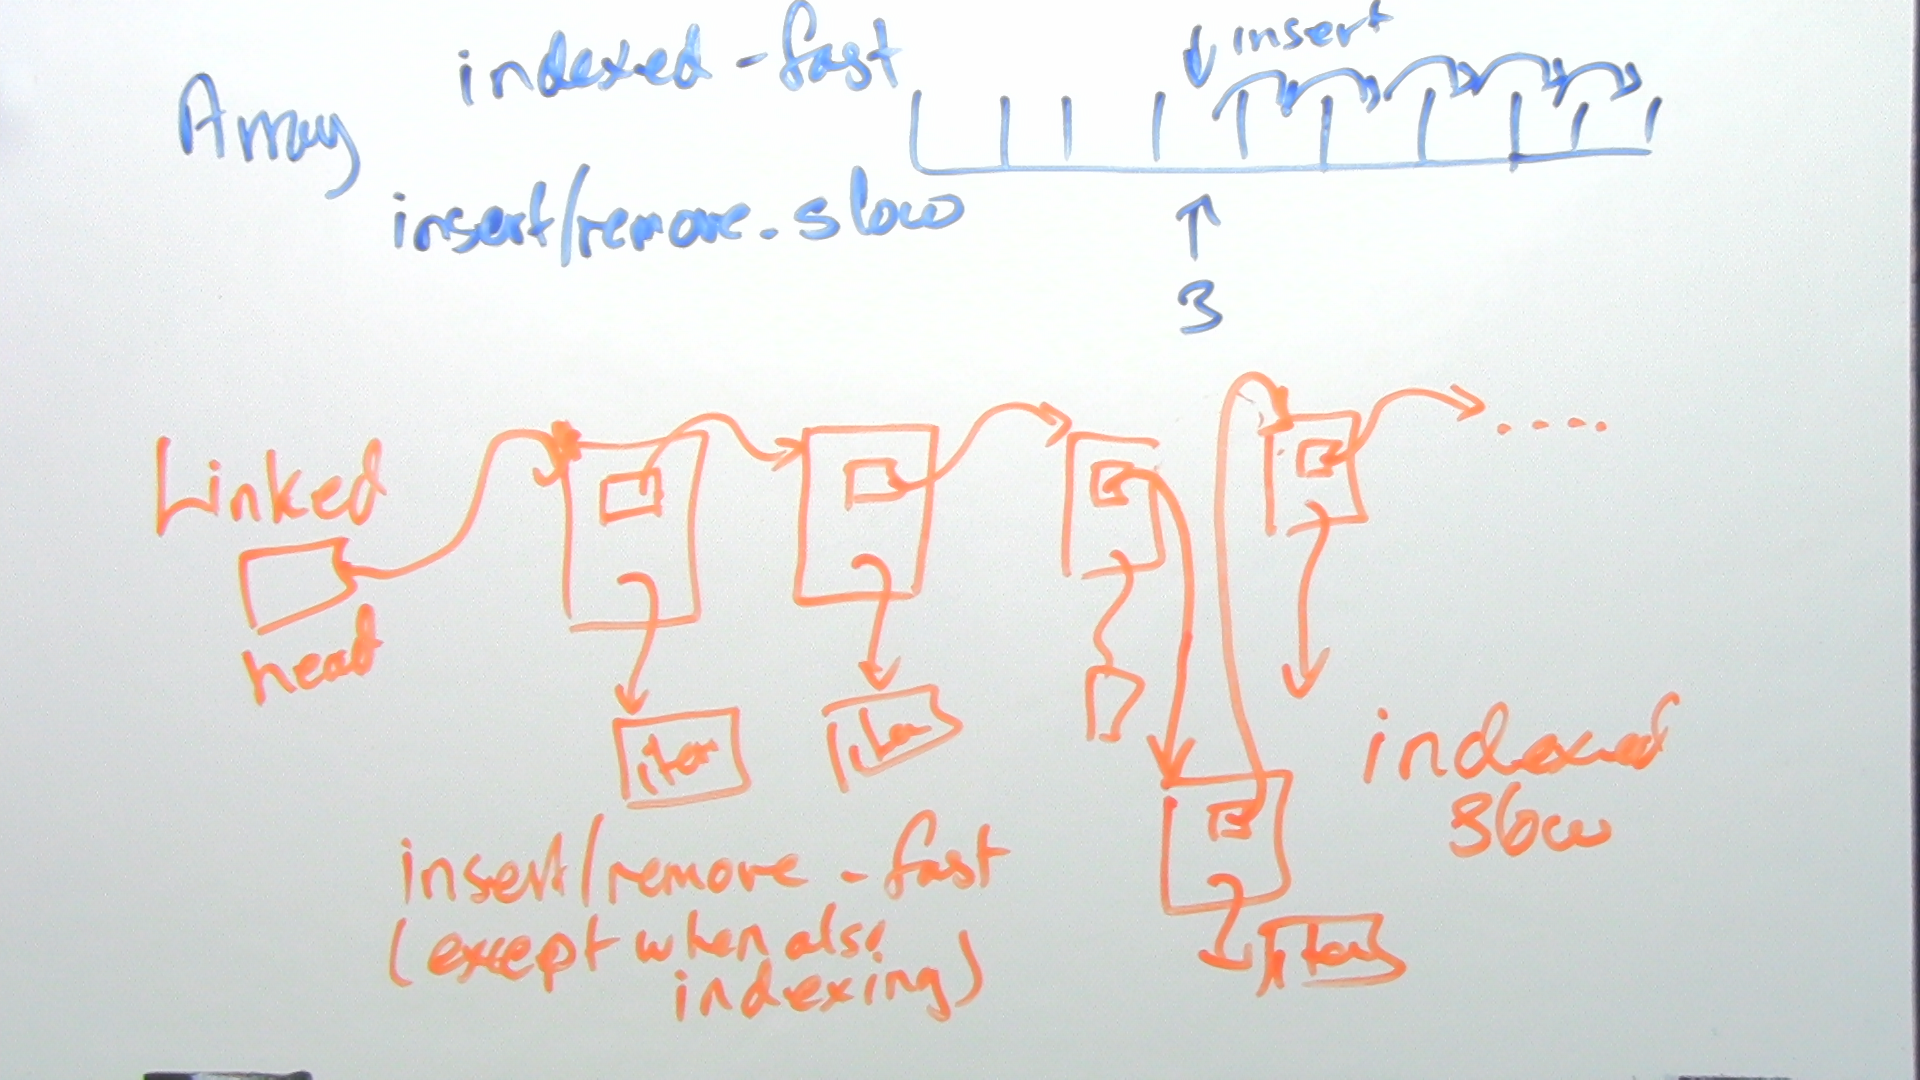 Array
indexed - fast
insert/remove - slow
insert
3
Linked
head
item
item
item
insert/remove - fast
(except when also
indexing)
indexed
slow